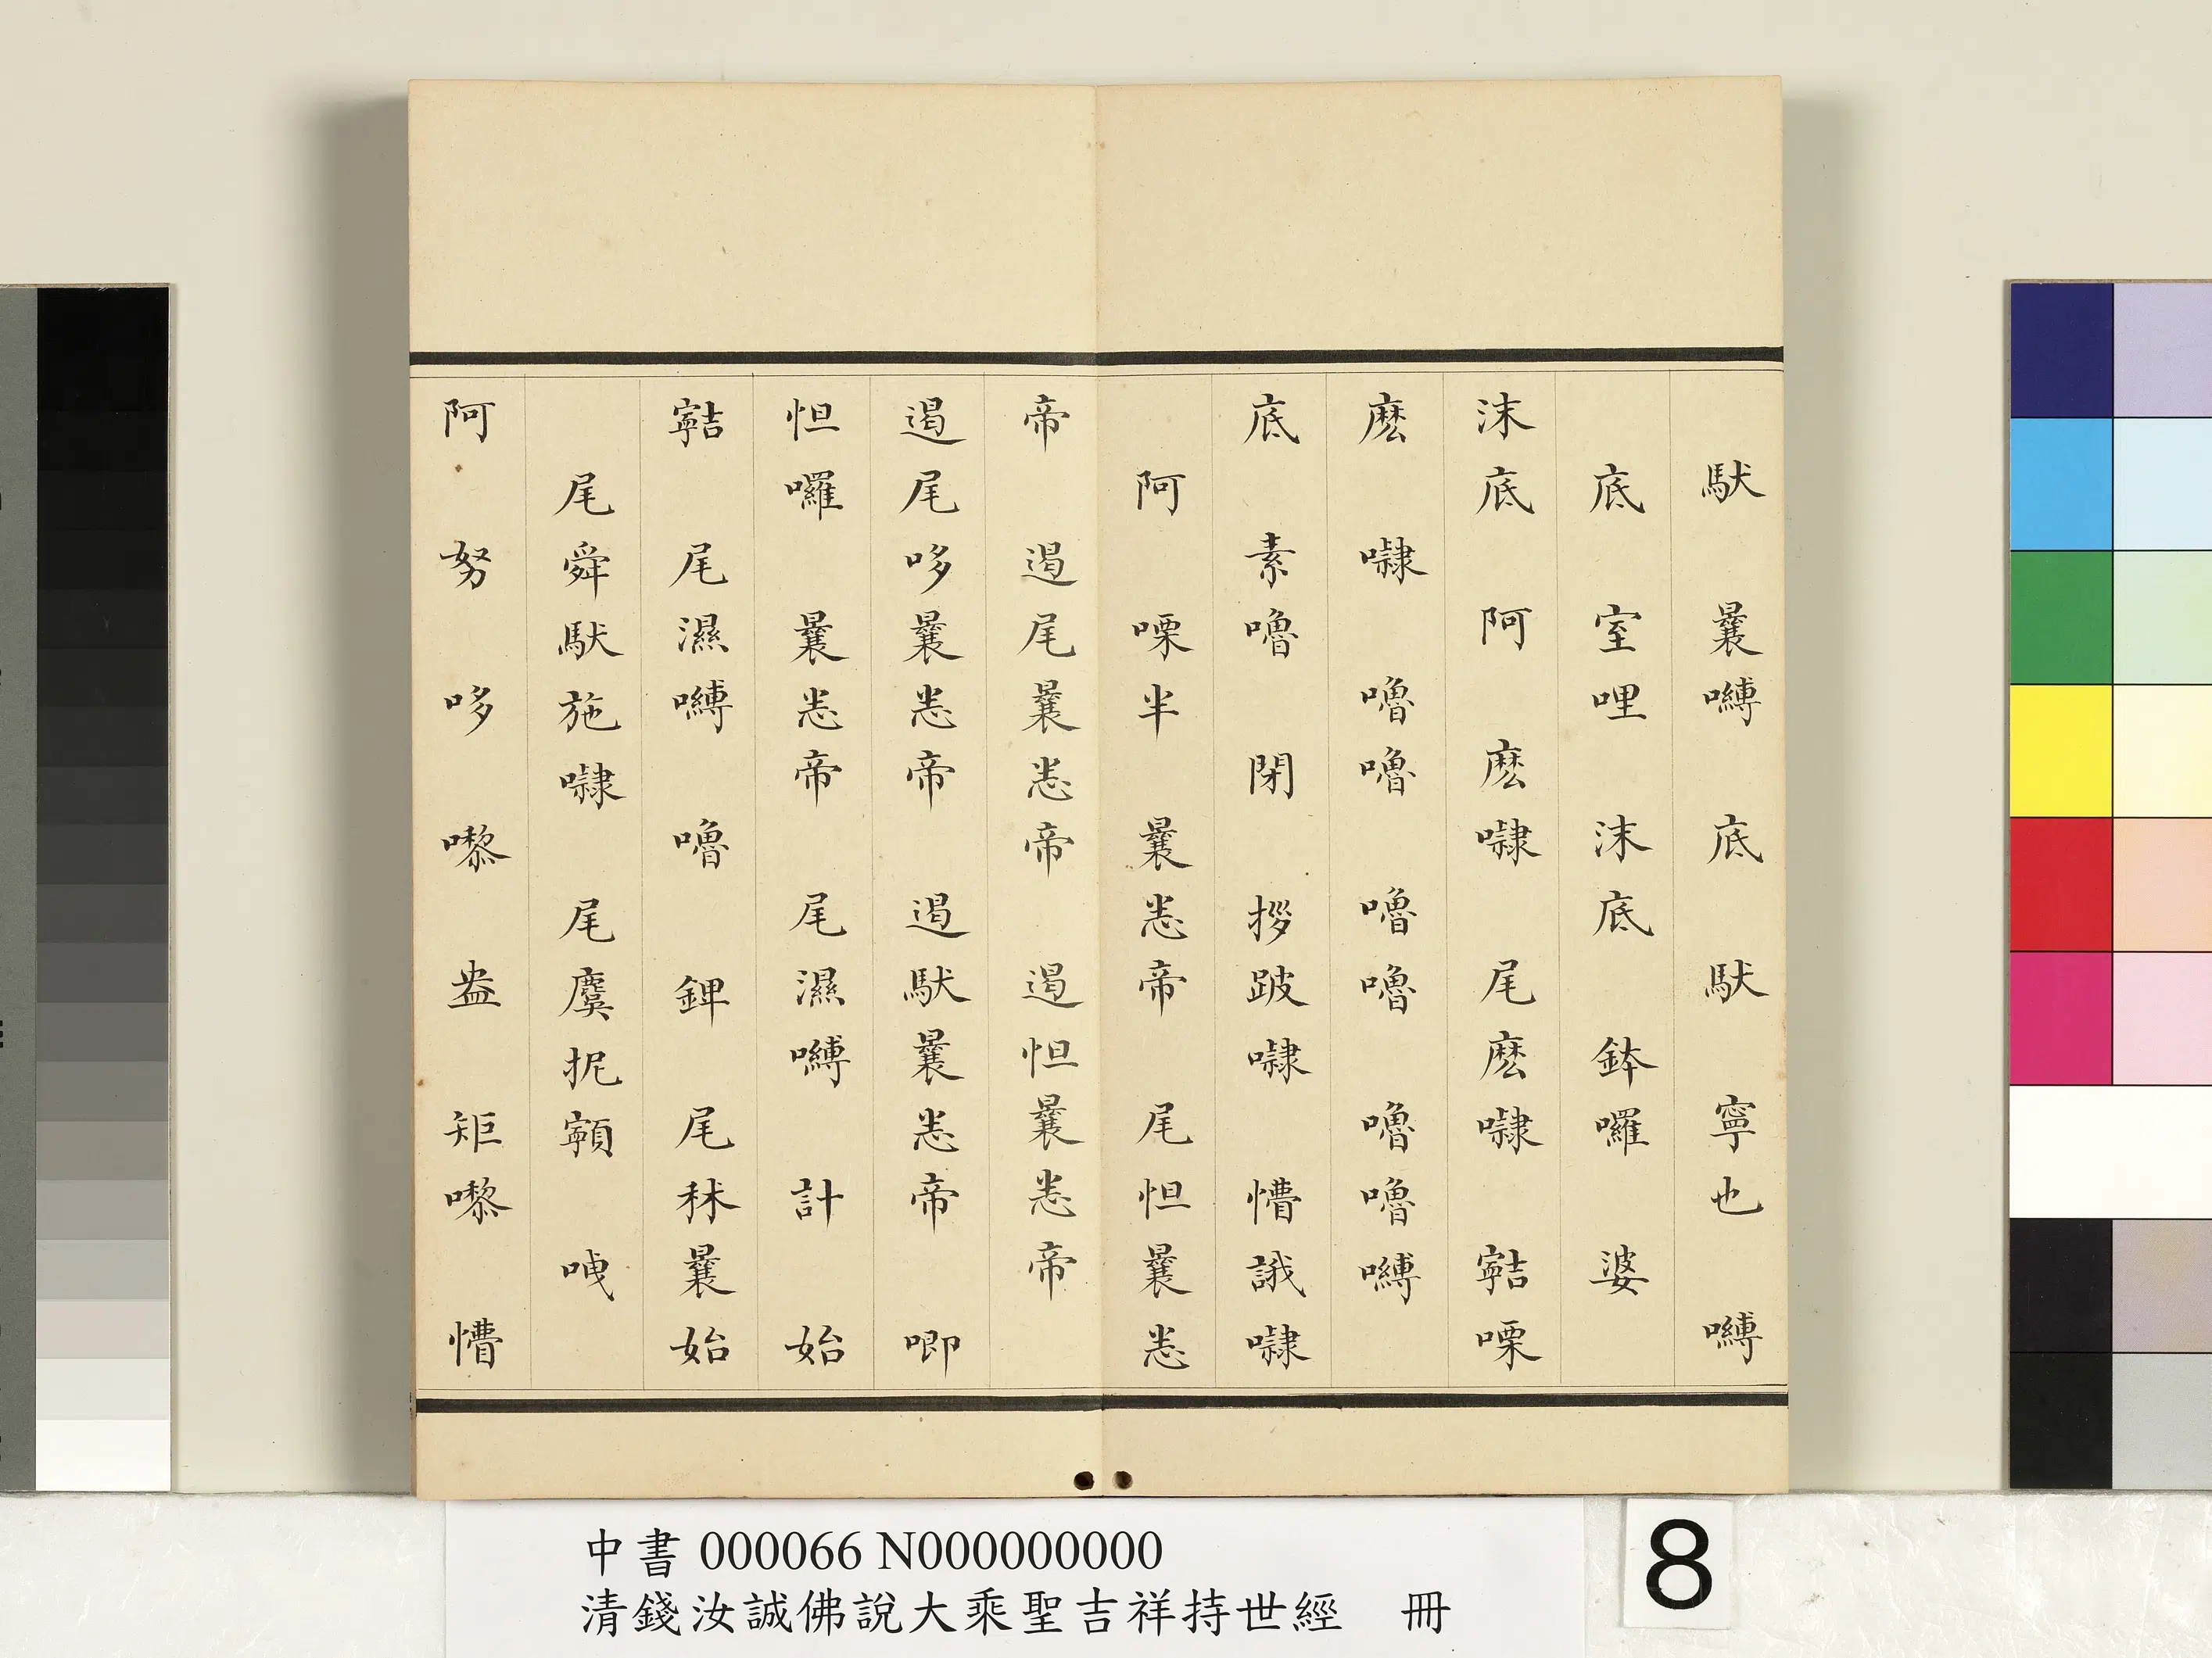 馱 曩嚩 底 馱 寧也 嚩
底 室哩 沫底 鉢囉 婆
沫底 阿 麽㘑 尾麽㘑 𡫸㗚
麽 㘑 嚕嚕 嚕嚕 嚕嚕嚩
底 素嚕 閉 拶跛㘑 懵誐㘑
阿 㗚半 曩恚帝 尾怛曩恚
帝 遏尾曩恚帝 遏怛曩恚帝
遏尾哆曩恚帝 遏馱曩恚帝 唧
怛囉 曩恚帝 尾濕嚩 計 始
尾濕嚩 嚕 尾秣曩始
尾舜馱施㘑 尾虞抳
阿 努 哆 嚟 盎 矩嚟 懵
中書 000066 N000000000
清錢汝誠佛說大乘聖吉祥持世經 冊
8